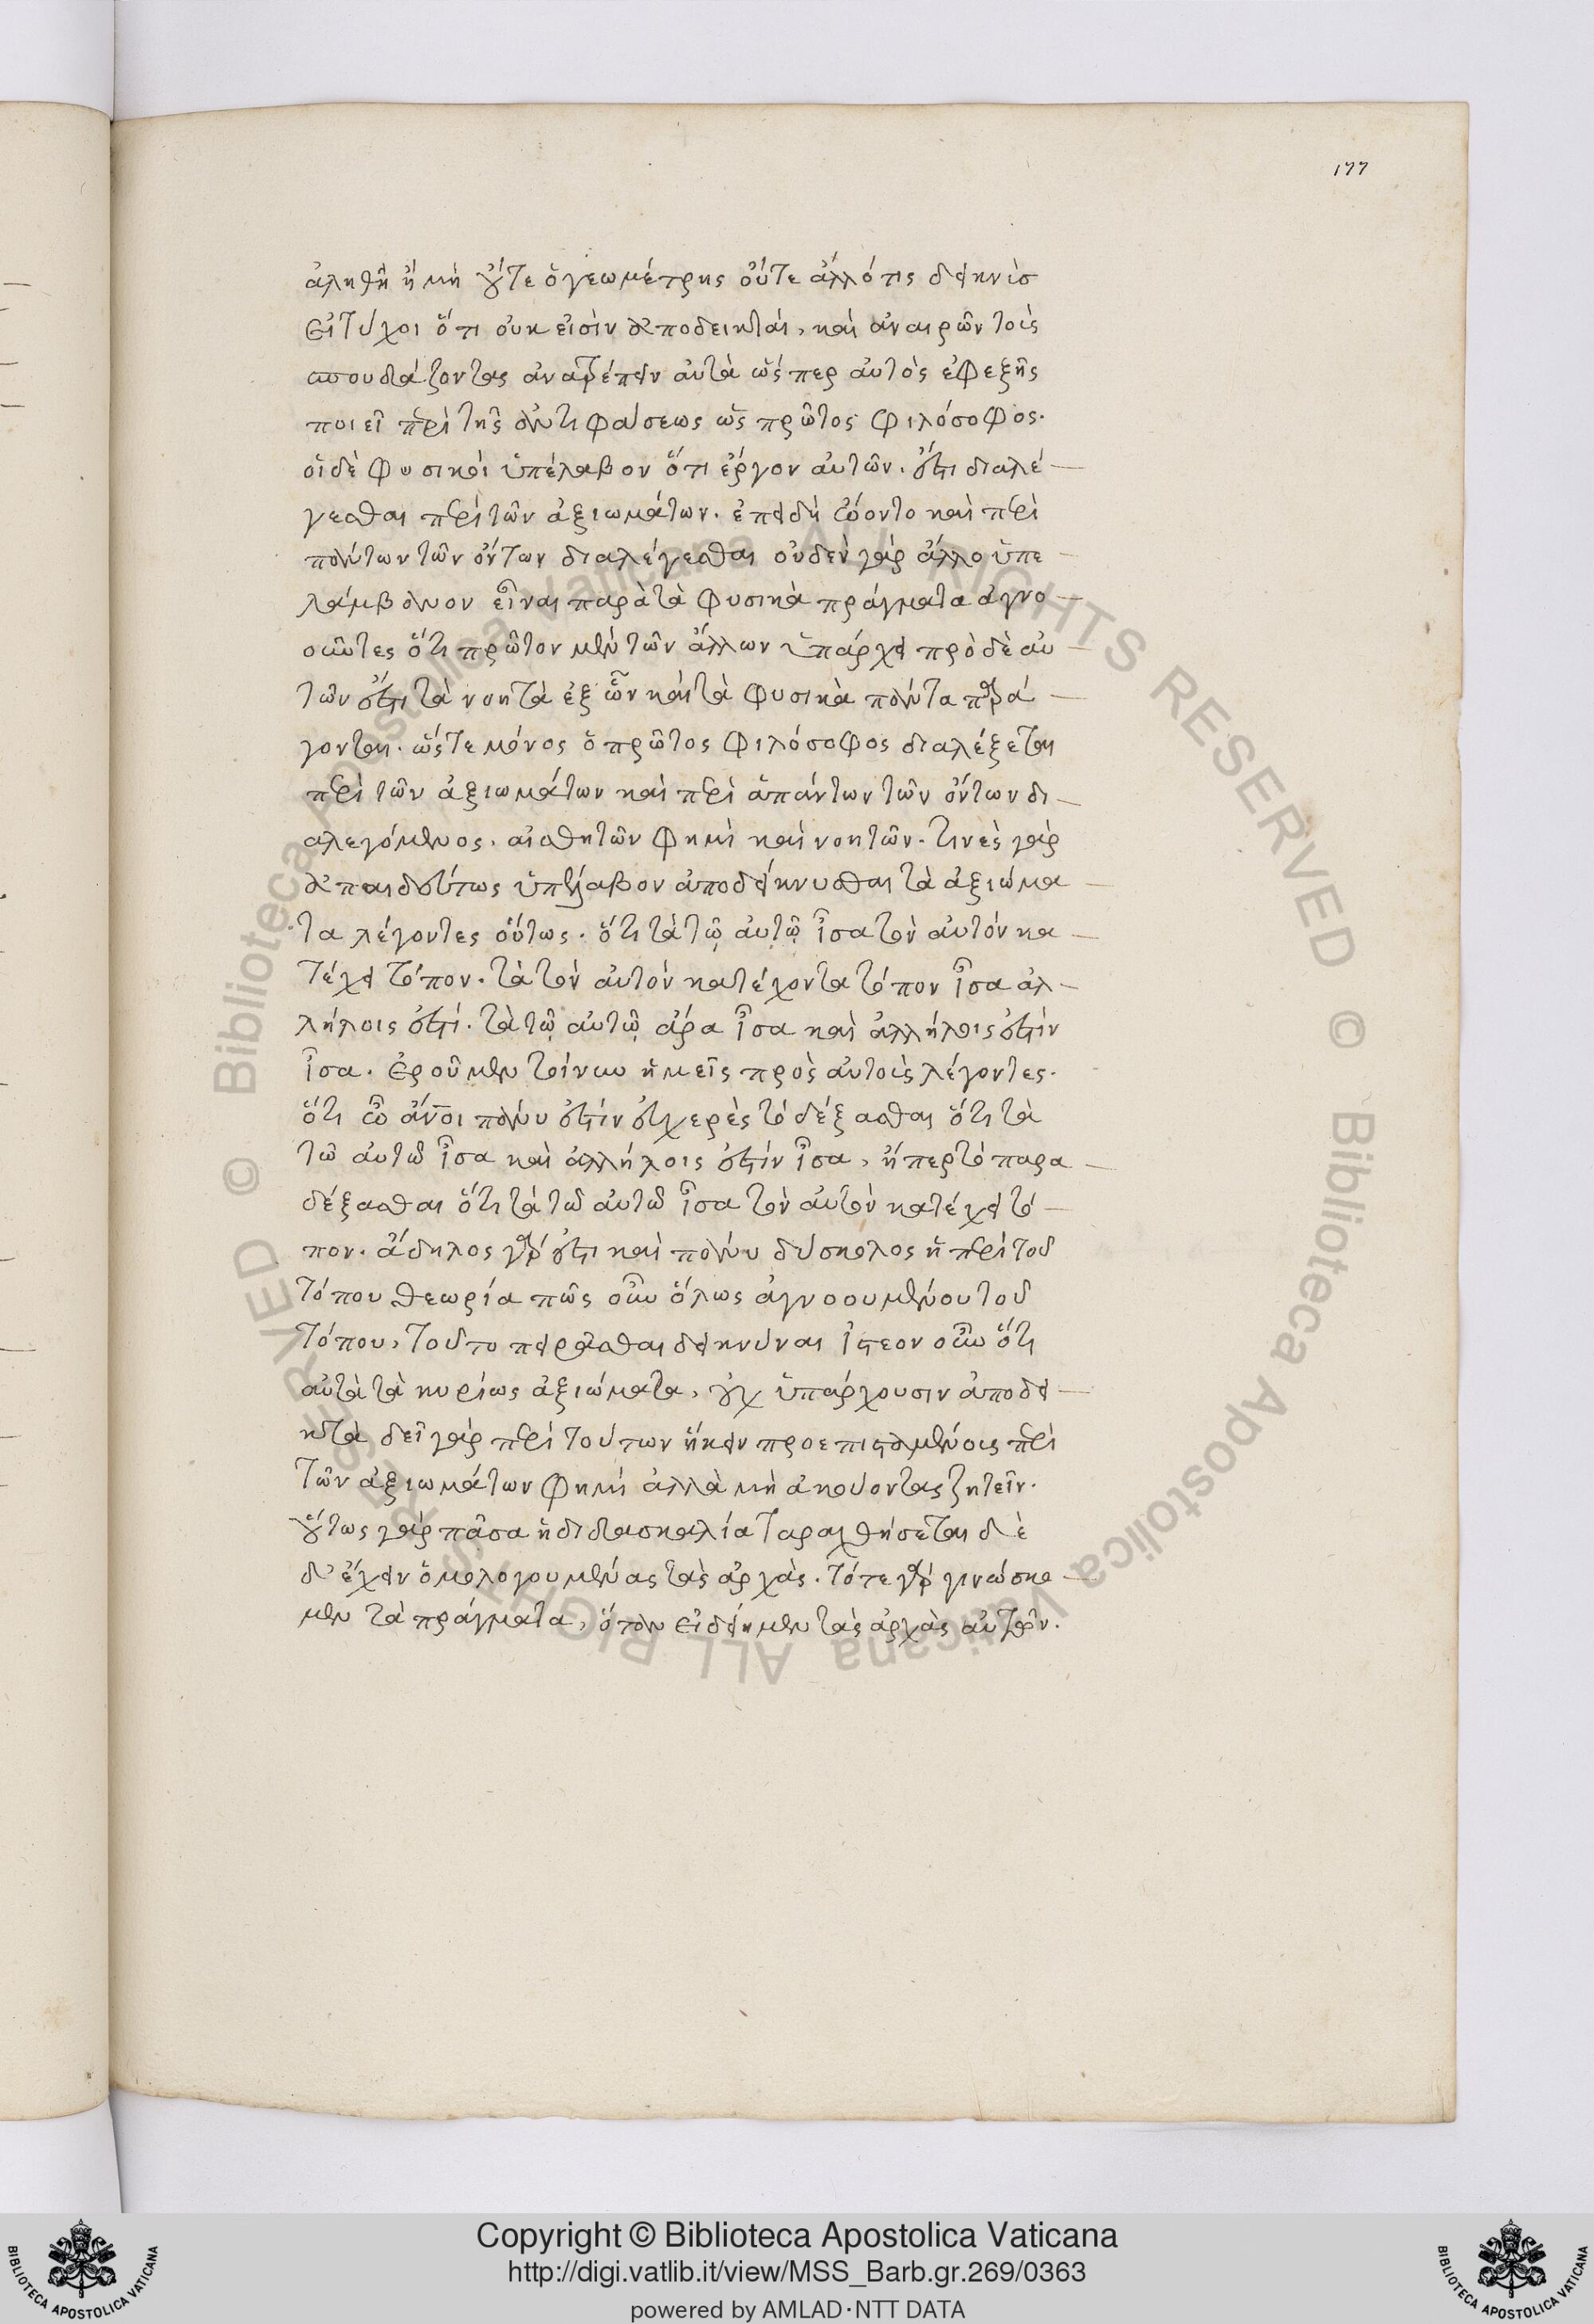 177
ἀληθῆ ἢ μὴ οὔτε ὁ γεωμέτρης οὔτε ἄλλό τις
εἰ τύχοι ὅτι οὐκ εἰσὶν ἀποδεικταὶ, καὶ ἀναιρῶν τοὺς
σπουδάζοντας ἀνατρέπειν αὐτὰ ὥσπερ αὐτὸς ἐφεξῆς
ποιεῖ περὶ τῆς ἀντιφάσεως ὡς πρῶτος φιλόσοφος.
οἱ δὲ φυσικοὶ ὑπέλαβον ὅτι ἔργον αὐτῶν. ἐστι διαλέ
γεσθαι περὶ τῶν ἀξιωμάτων. ἐπειδὴ ᾤοντο καὶ περὶ
πάντων τῶν ὄντων διαλέγεσθαι οὐδὲν γὰρ ἄλλο ὑπε
λάμβανον εἶναι παρὰ τὰ φυσικὰ πράγματα ἀγνο
οῦντες ὅτι πρῶτον μὲν τῶν ἄλλων ὑπάρχει πρὸ δὲ αὐ
τῶν ἐστι τὰ νοητὰ ἐξ ὧν καὶ τὰ φυσικὰ πάντα παρά
γονται. ὥστε μόνος ὁ πρῶτος φιλόσοφος διαλέξεται
περὶ τῶν ἀξιωμάτων καὶ περὶ ἁπάντων τῶν ὄντων δι
αλεγόμενος. αἰσθητῶν φημὶ καὶ νοητῶν. τινὲς γὰρ
ἀπαιδεύτως ὑπέλαβον ἀποδείκνυσθαι τὰ ἀξιώμα
τα λέγοντες οὕτως. ὅτι τὰ τῷ αὐτῷ ἶσα τὸν αὐτὸν κα
τέχει τόπον. τὰ τὸν αὐτὸν κατέχοντα τόπον ἶσα ἀλ
λήλοις ἐστί. τὰ τῷ αὐτῷ ἄρα ἶσα καὶ ἀλλήλοις ἐστὶν
ἶσα. ἐροῦμεν τοίνυν ἡμεῖς πρὸς αὐτοὺς λέγοντες.
ὅτι ὦ ἄν̅οι πάνυ ἐστὶν εὐχερὲς τὸ δέξασθαι ὅτι τὰ
τῶ αὐτῶ ἶσα καὶ ἀλλήλοις ἐστὶν ἶσα, ἤπερ τὸ παρα
δέξασθαι ὅτι τὰ τῶ αὐτῶ ἶσα τὸν αὐτὸν κατέχει τό
πον. ἄδηλος γάρ ἐστι καὶ πάνυ δύσκολος ἡ περὶ τοῦ
τόπου θεωρία πῶς οὖν ὅλως ἀγνοουμένου τοῦ
τόπου, τοῦτο πειρᾶσθαι δεικνύναι ἰστέον οὖν ὅτι
αὐτὰ τὰ κυρίως ἀξιώματα, οὐχ ὑπάρχουσιν ἀποδει
κτὰ δεῖ γὰρ περὶ τούτων ἥκειν προεπισταμένους περὶ
τῶν ἀξιωμάτων φημὶ ἀλλὰ μὴ ἀκούοντας ζητεῖν.
οὕτως γὰρ πᾶσα ἡ διδασκαλία ταραχθήσεται δὲ
δ' ἔχειν ὁμολογουμένας τὰς ἀρχὰς. τότε γὰρ γινώσκο
μεν τὰ πράγματα, ὅταν εἰδείημεν τὰς ἀρχὰς αὐτῶν.
Copyright © Biblioteca Apostolica Vaticana
http://digi.vatlib.it/view/MSS_Barb.gr.269/0363
powered by AMLAD·NTT DATA